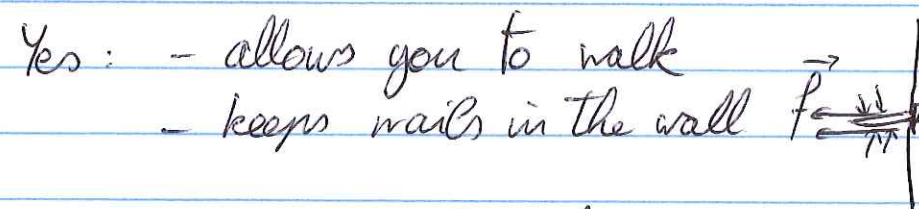 Yes: - allows you to walk
- keeps nails in the wall f